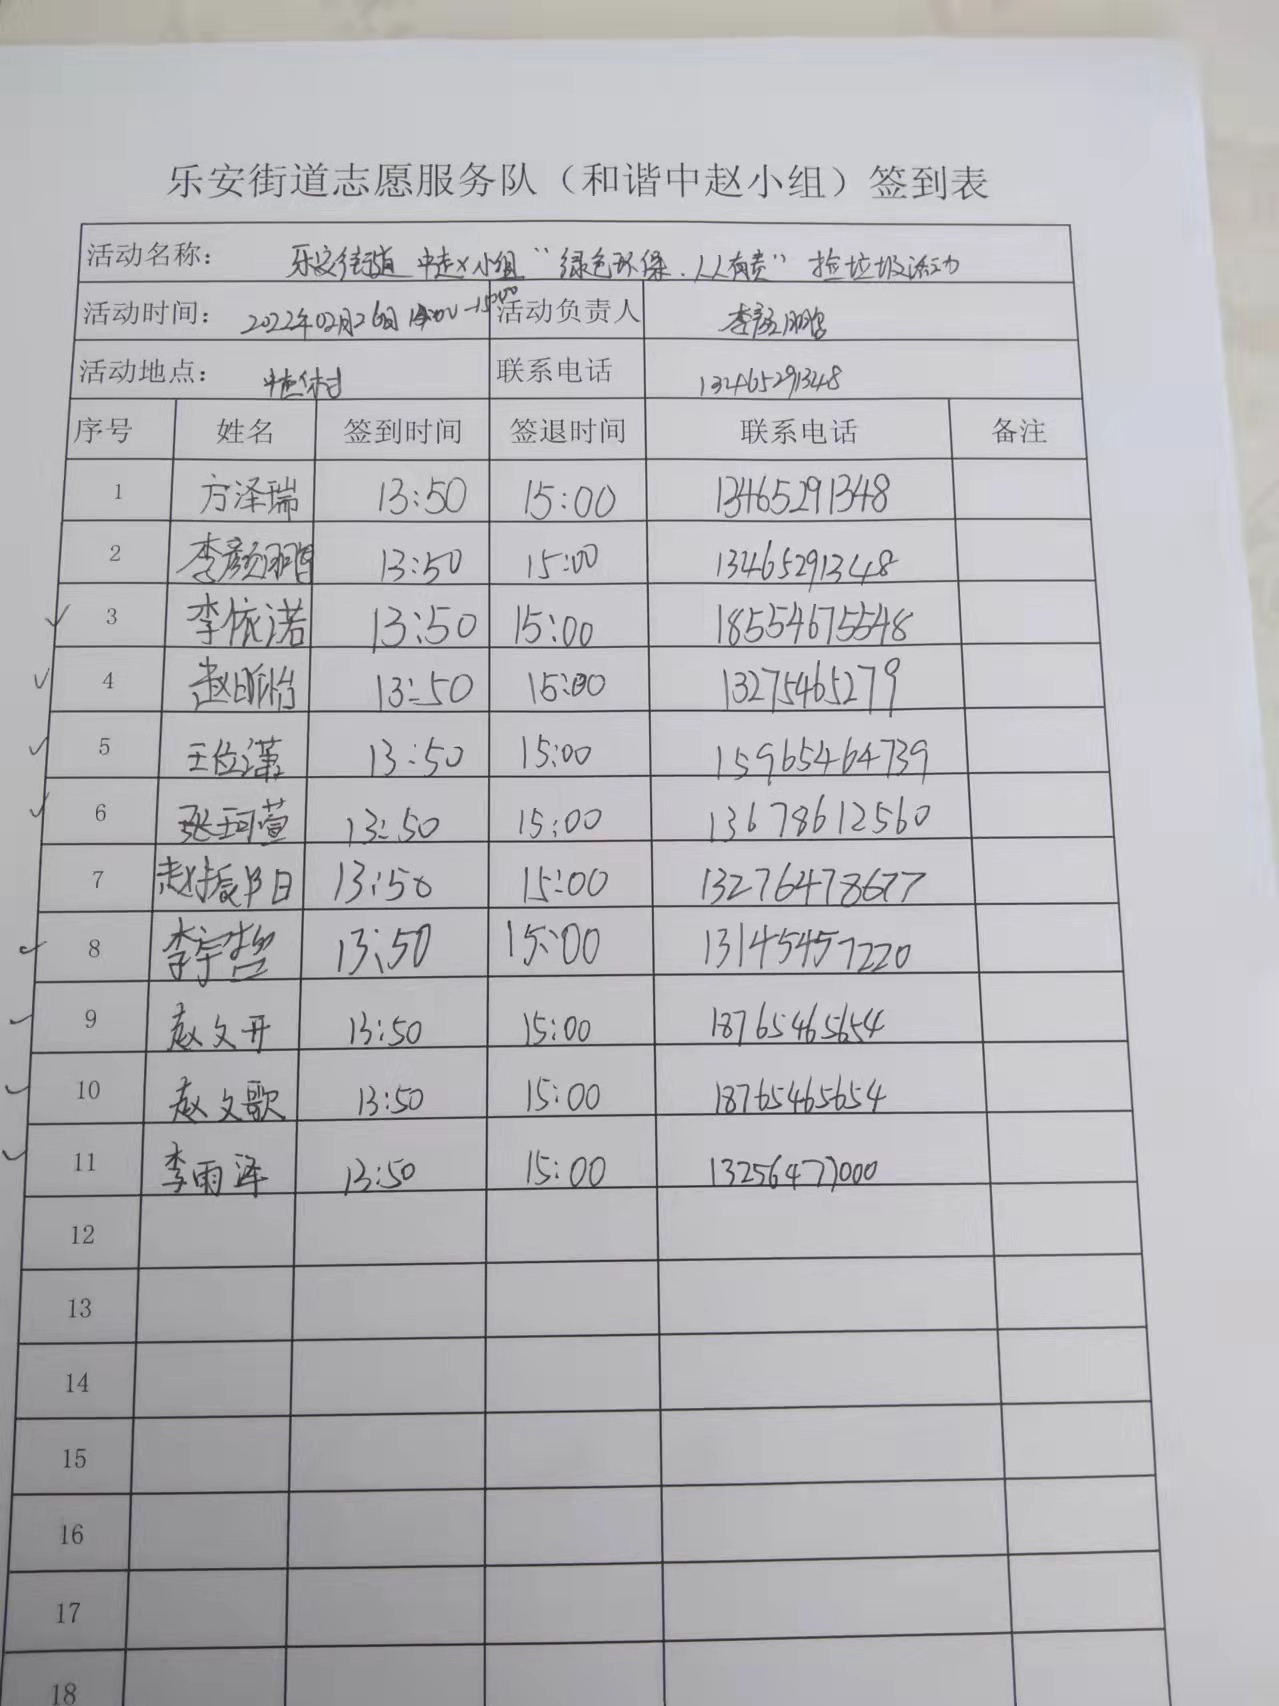 乐安街道志愿服务队（和谐中赵小组）签到表
活动名称： 乐安街道 中赵小组“绿色环保.人人有责”捡垃圾活动
活动时间： 2022年02月26日 -15:00 活动负责人 李颜鹏
活动地点： 中赵村 联系电话 13465291348
序号 姓名 签到时间 签退时间 联系电话 备注
1 方泽瑞 13:50 15:00 13465291348
2 李颜鹏 13:50 15:00 13465291348
3 李依诺 13:50 15:00 18554675548
4 赵昕怡 13:50 15:00 13275465279
5 王位潇 13:50 15:00 15965464739
6 张珂萱 13:50 15:00 13678612560
7 赵振 13:50 15:00 13276478677
8 李宇哲 13:50 15:00 13145457220
9 赵文开 13:50 15:00 18765465654
10 赵文歌 13:50 15:00 18765465654
11 李雨泽 13:50 15:00 13256477000
12
13
14
15
16
17
18